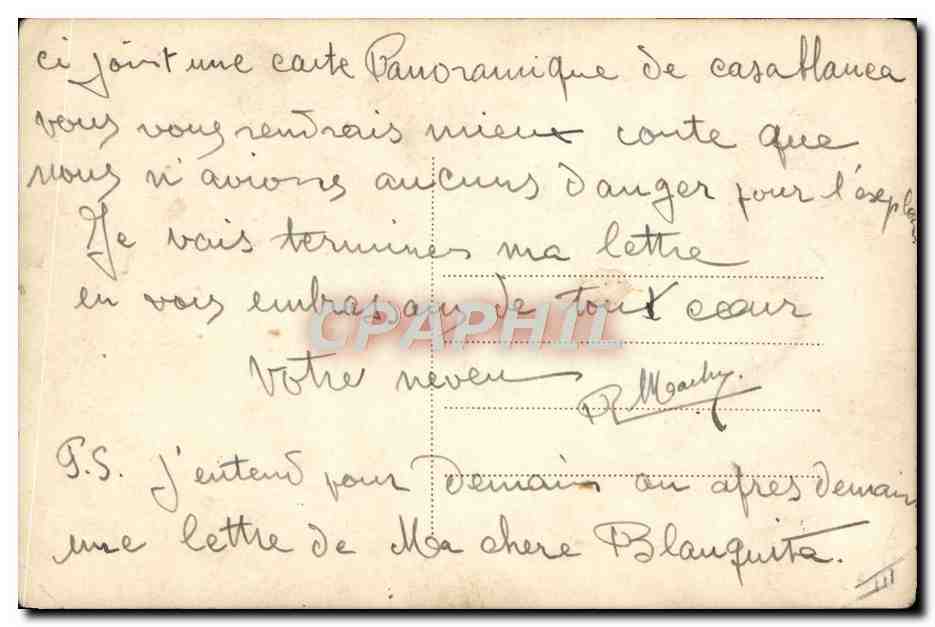 ci joint une carte Panoramique de casablanca
vous vous rendrais mieux conte que
nous n'avions aucuns danger pour l'explos
Je vais terminer ma lettre
en vous embrassant de tout coeur
CPAPHIL
Votre neveu
P.S. j'entend pour demain ou apres demain
une lettre de Ma chere Blanquita.
III